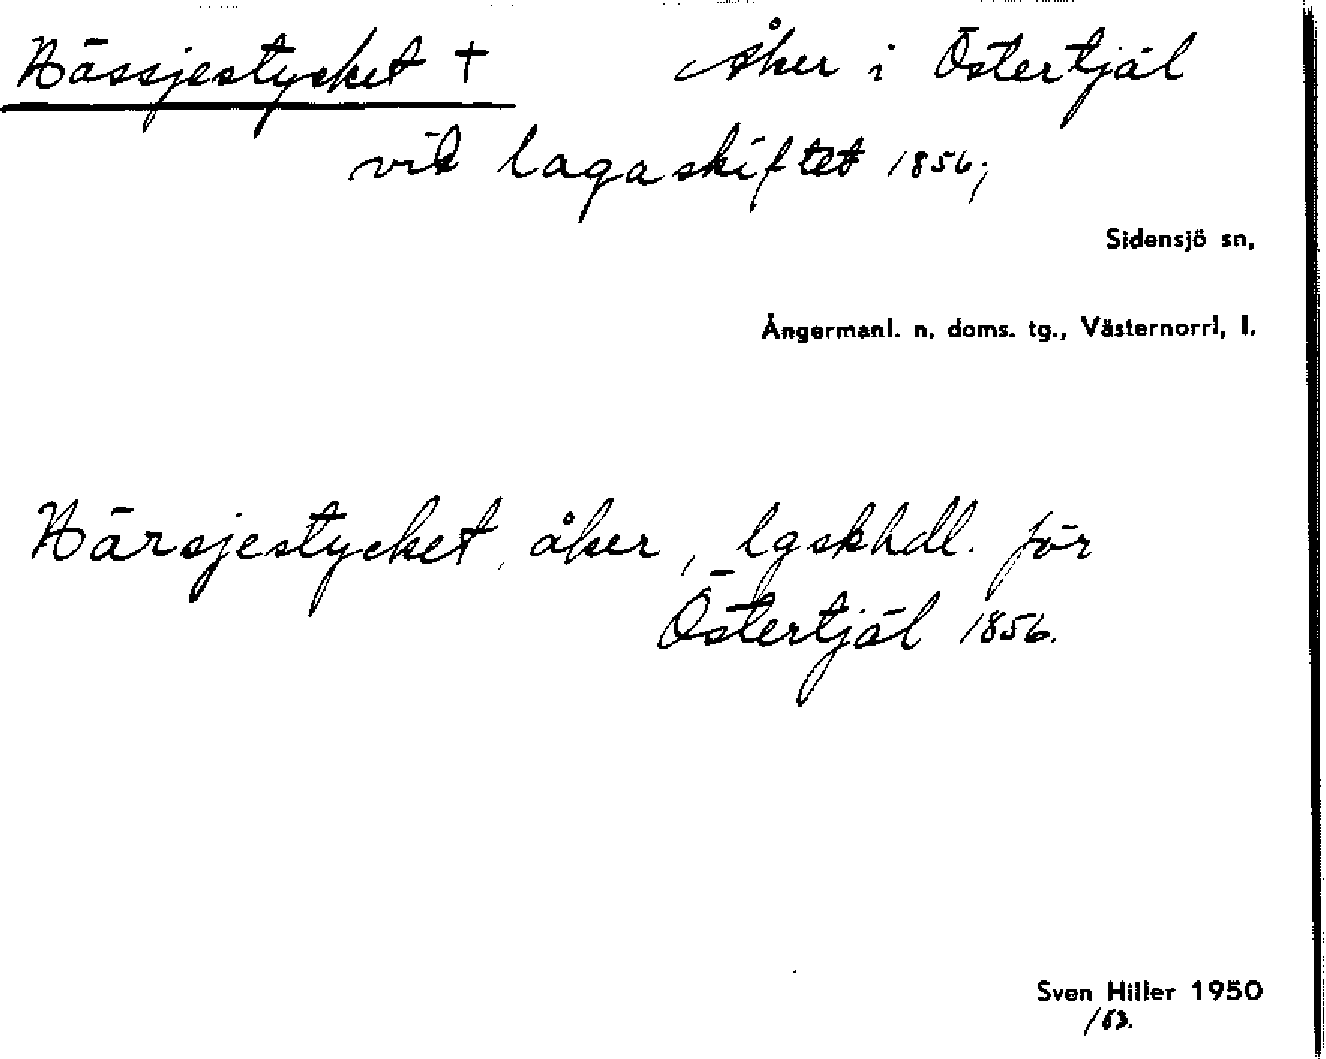 Hässjestycket † Åker i Östertjäl
vid lagaskiftet 1856;
Sidensjö sn,
Ångermanl. n. doms. tg., Västernorrl. l.
Härsjestycket, åker, lgskhdl. för
Östertjäl 1856.
Sven Hiller 1950